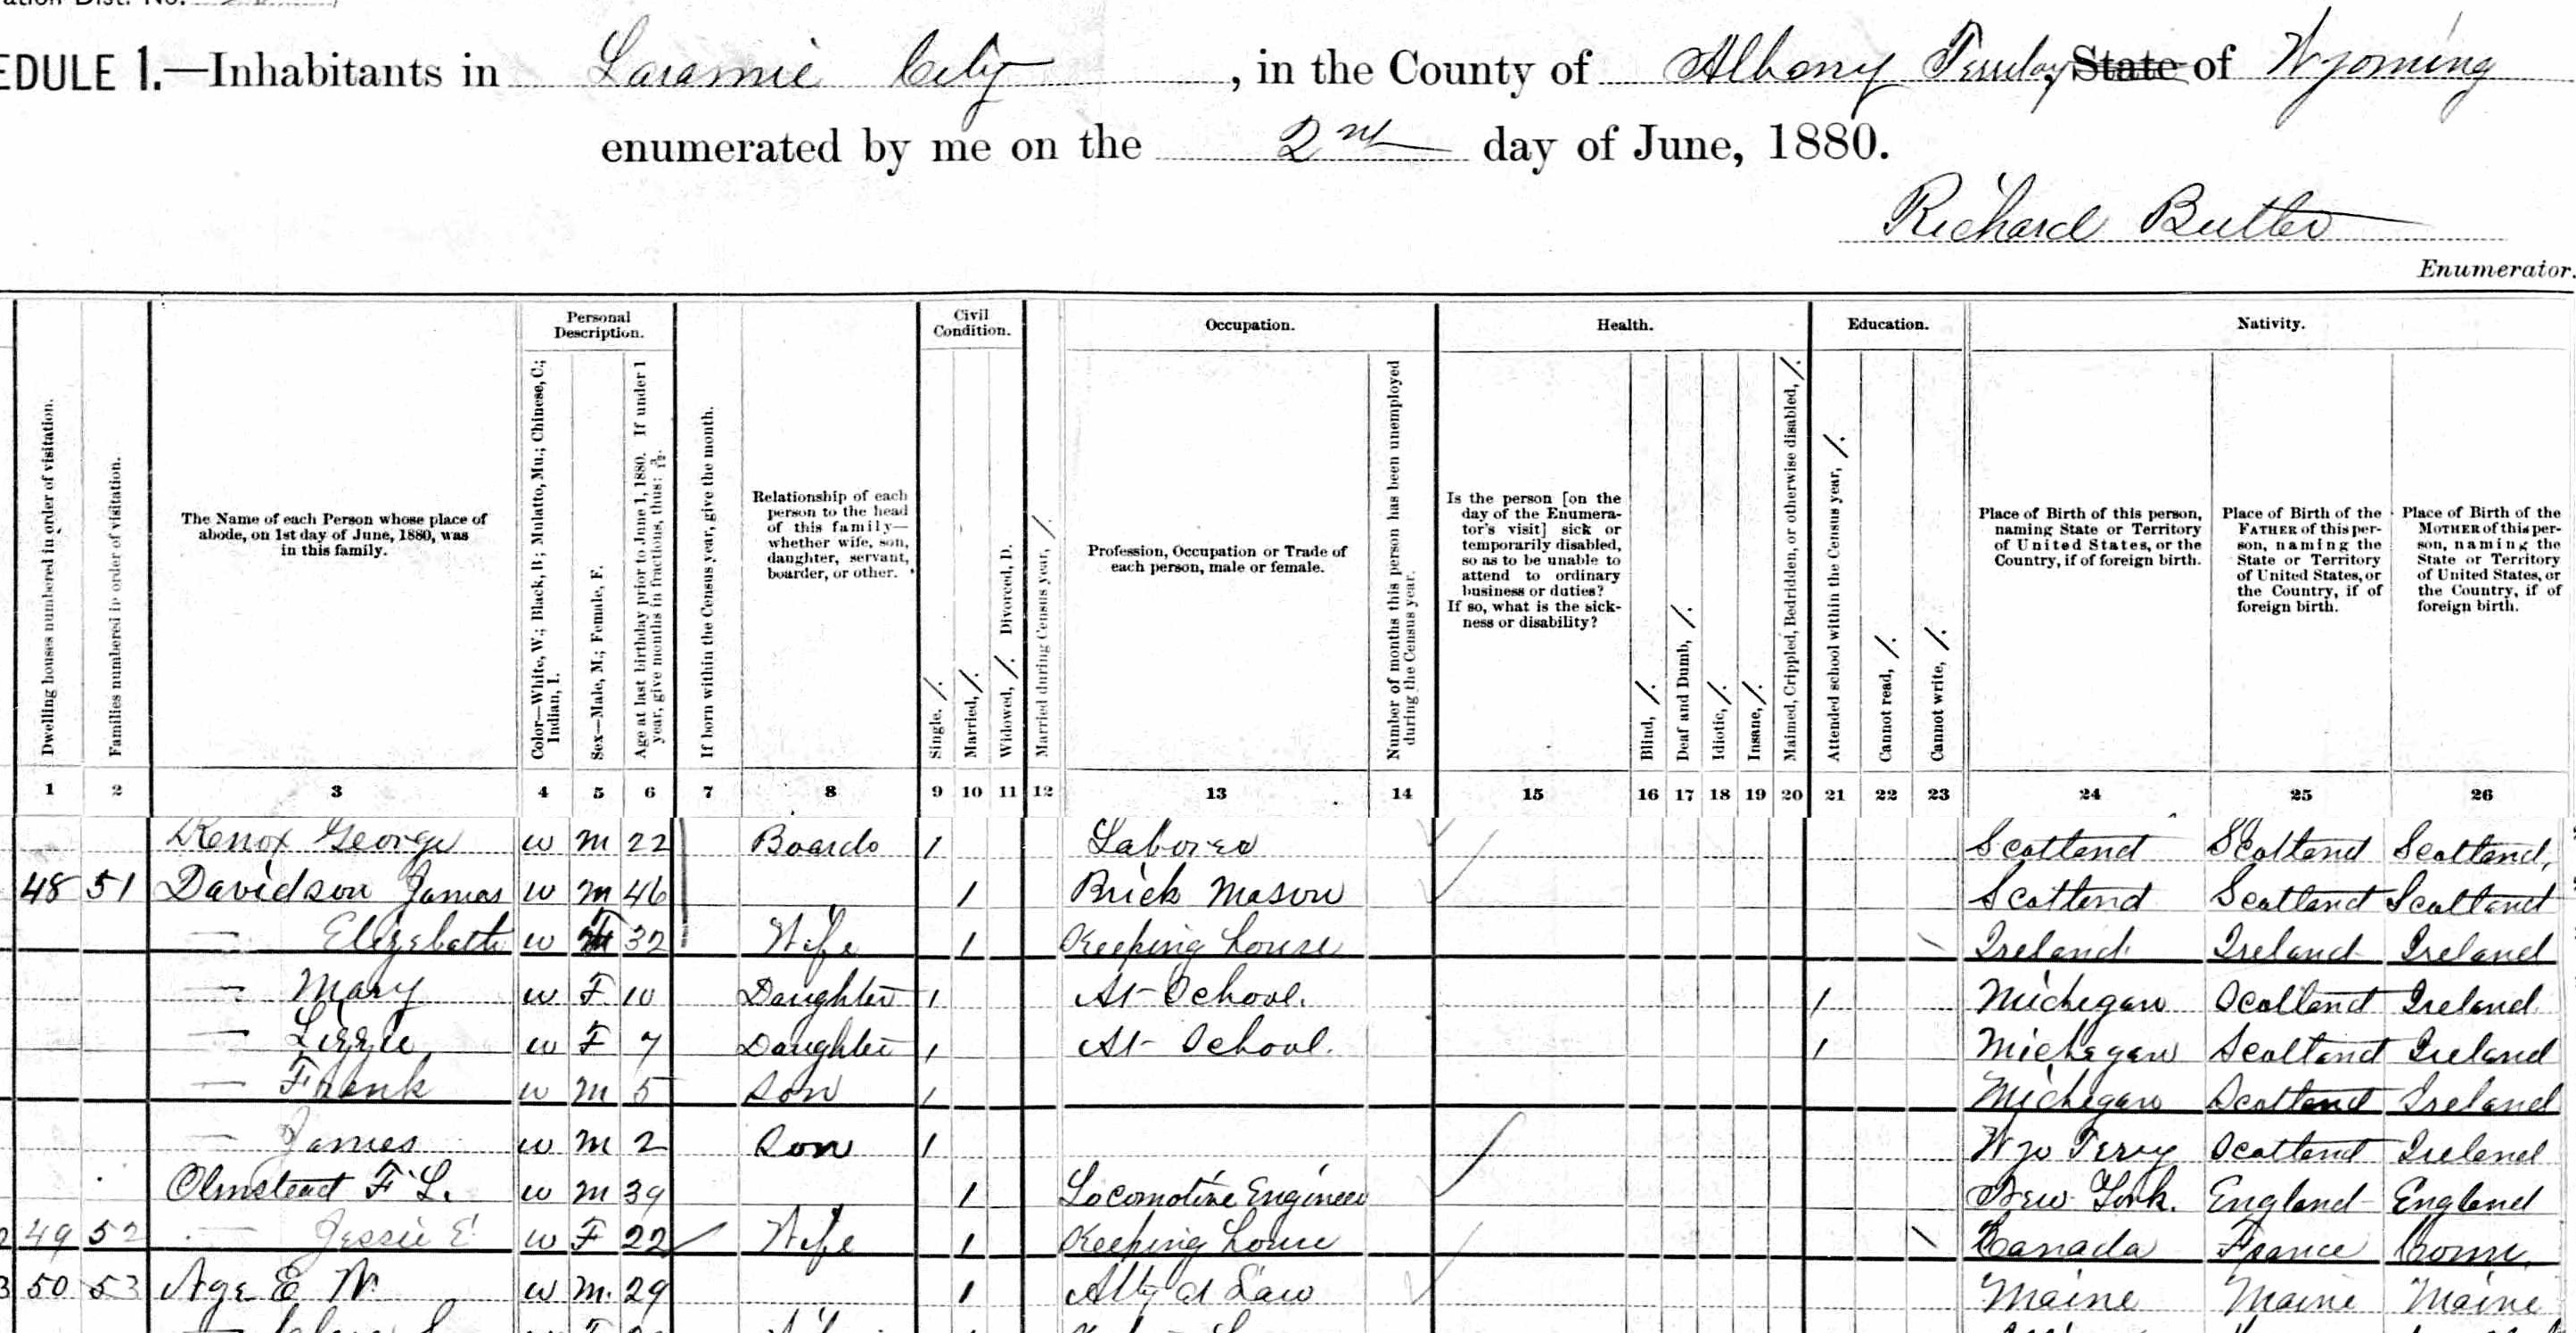 ation Dist. No.
EDULE 1.—Inhabitants in Laramie City, in the County of Albany Territory, State of Wyoming
enumerated by me on the 2nd day of June, 1880.
Richard Butler
Enumerator.
Personal Description.
Civil Condition.
Occupation.
Health.
Education.
Nativity.
Dwelling houses numbered in order of visitation.
Families numbered in order of visitation.
The Name of each Person whose place of abode, on 1st day of June, 1880, was in this family.
Color—White, W.; Black, B; Mulatto, Mu.; Chinese, C.; Indian, I.
Sex—Male, M.; Female, F.
Age at last birthday prior to June 1, 1880. If under 1 year, give months in fractions, thus: 3/12.
If born within the Census year, give the month.
Relationship of each person to the head of this family—whether wife, son, daughter, servant, boarder, or other.
Single, /.
Married, /.
Widowed, /. Divorced, D.
Married during Census year, /.
Profession, Occupation or Trade of each person, male or female.
Number of months this person has been unemployed during the Census year.
Is the person [on the day of the Enumerator's visit] sick or temporarily disabled, so as to be unable to attend to ordinary business or duties? If so, what is the sickness or disability?
Blind, /.
Deaf and Dumb, /.
Idiotic, /.
Insane, /.
Maimed, Crippled, Bedridden, or otherwise disabled, /.
Attended school within the Census year, /.
Cannot read, /.
Cannot write, /.
Place of Birth of this person, naming State or Territory of United States, or the Country, if of foreign birth.
Place of Birth of the FATHER of this person, naming the State or Territory of United States, or the Country, if of foreign birth.
Place of Birth of the MOTHER of this person, naming the State or Territory of United States, or the Country, if of foreign birth.
1 2 3 4 5 6 7 8 9 10 11 12 13 14 15 16 17 18 19 20 21 22 23 24 25 26
George W M 22 Boarder / Laborer Scotland Scotland Scotland,
48 51 Davidson James W M 46 / Brick Mason Scotland Scotland Scotland
— Elizabeth W F 32 Wife / Keeping house \ Ireland Ireland Ireland
— Mary W F 10 Daughter / At School. / Michigan Scotland Ireland
— Lizzie W F 7 Daughter / At School. / Michigan Scotland Ireland
— Frank W M 5 Son / Michigan Scotland Ireland
— James W M 2 Son / Wyo Terry Scotland Ireland
Olmstead F. L. W M 39 / Locomotive Engineer New York. England England
49 52 — Jessie E W F 22 Wife / Keeping house \ Canada France Conn.
50 53 E W W M. 29 / Atty at Law Maine Maine Maine